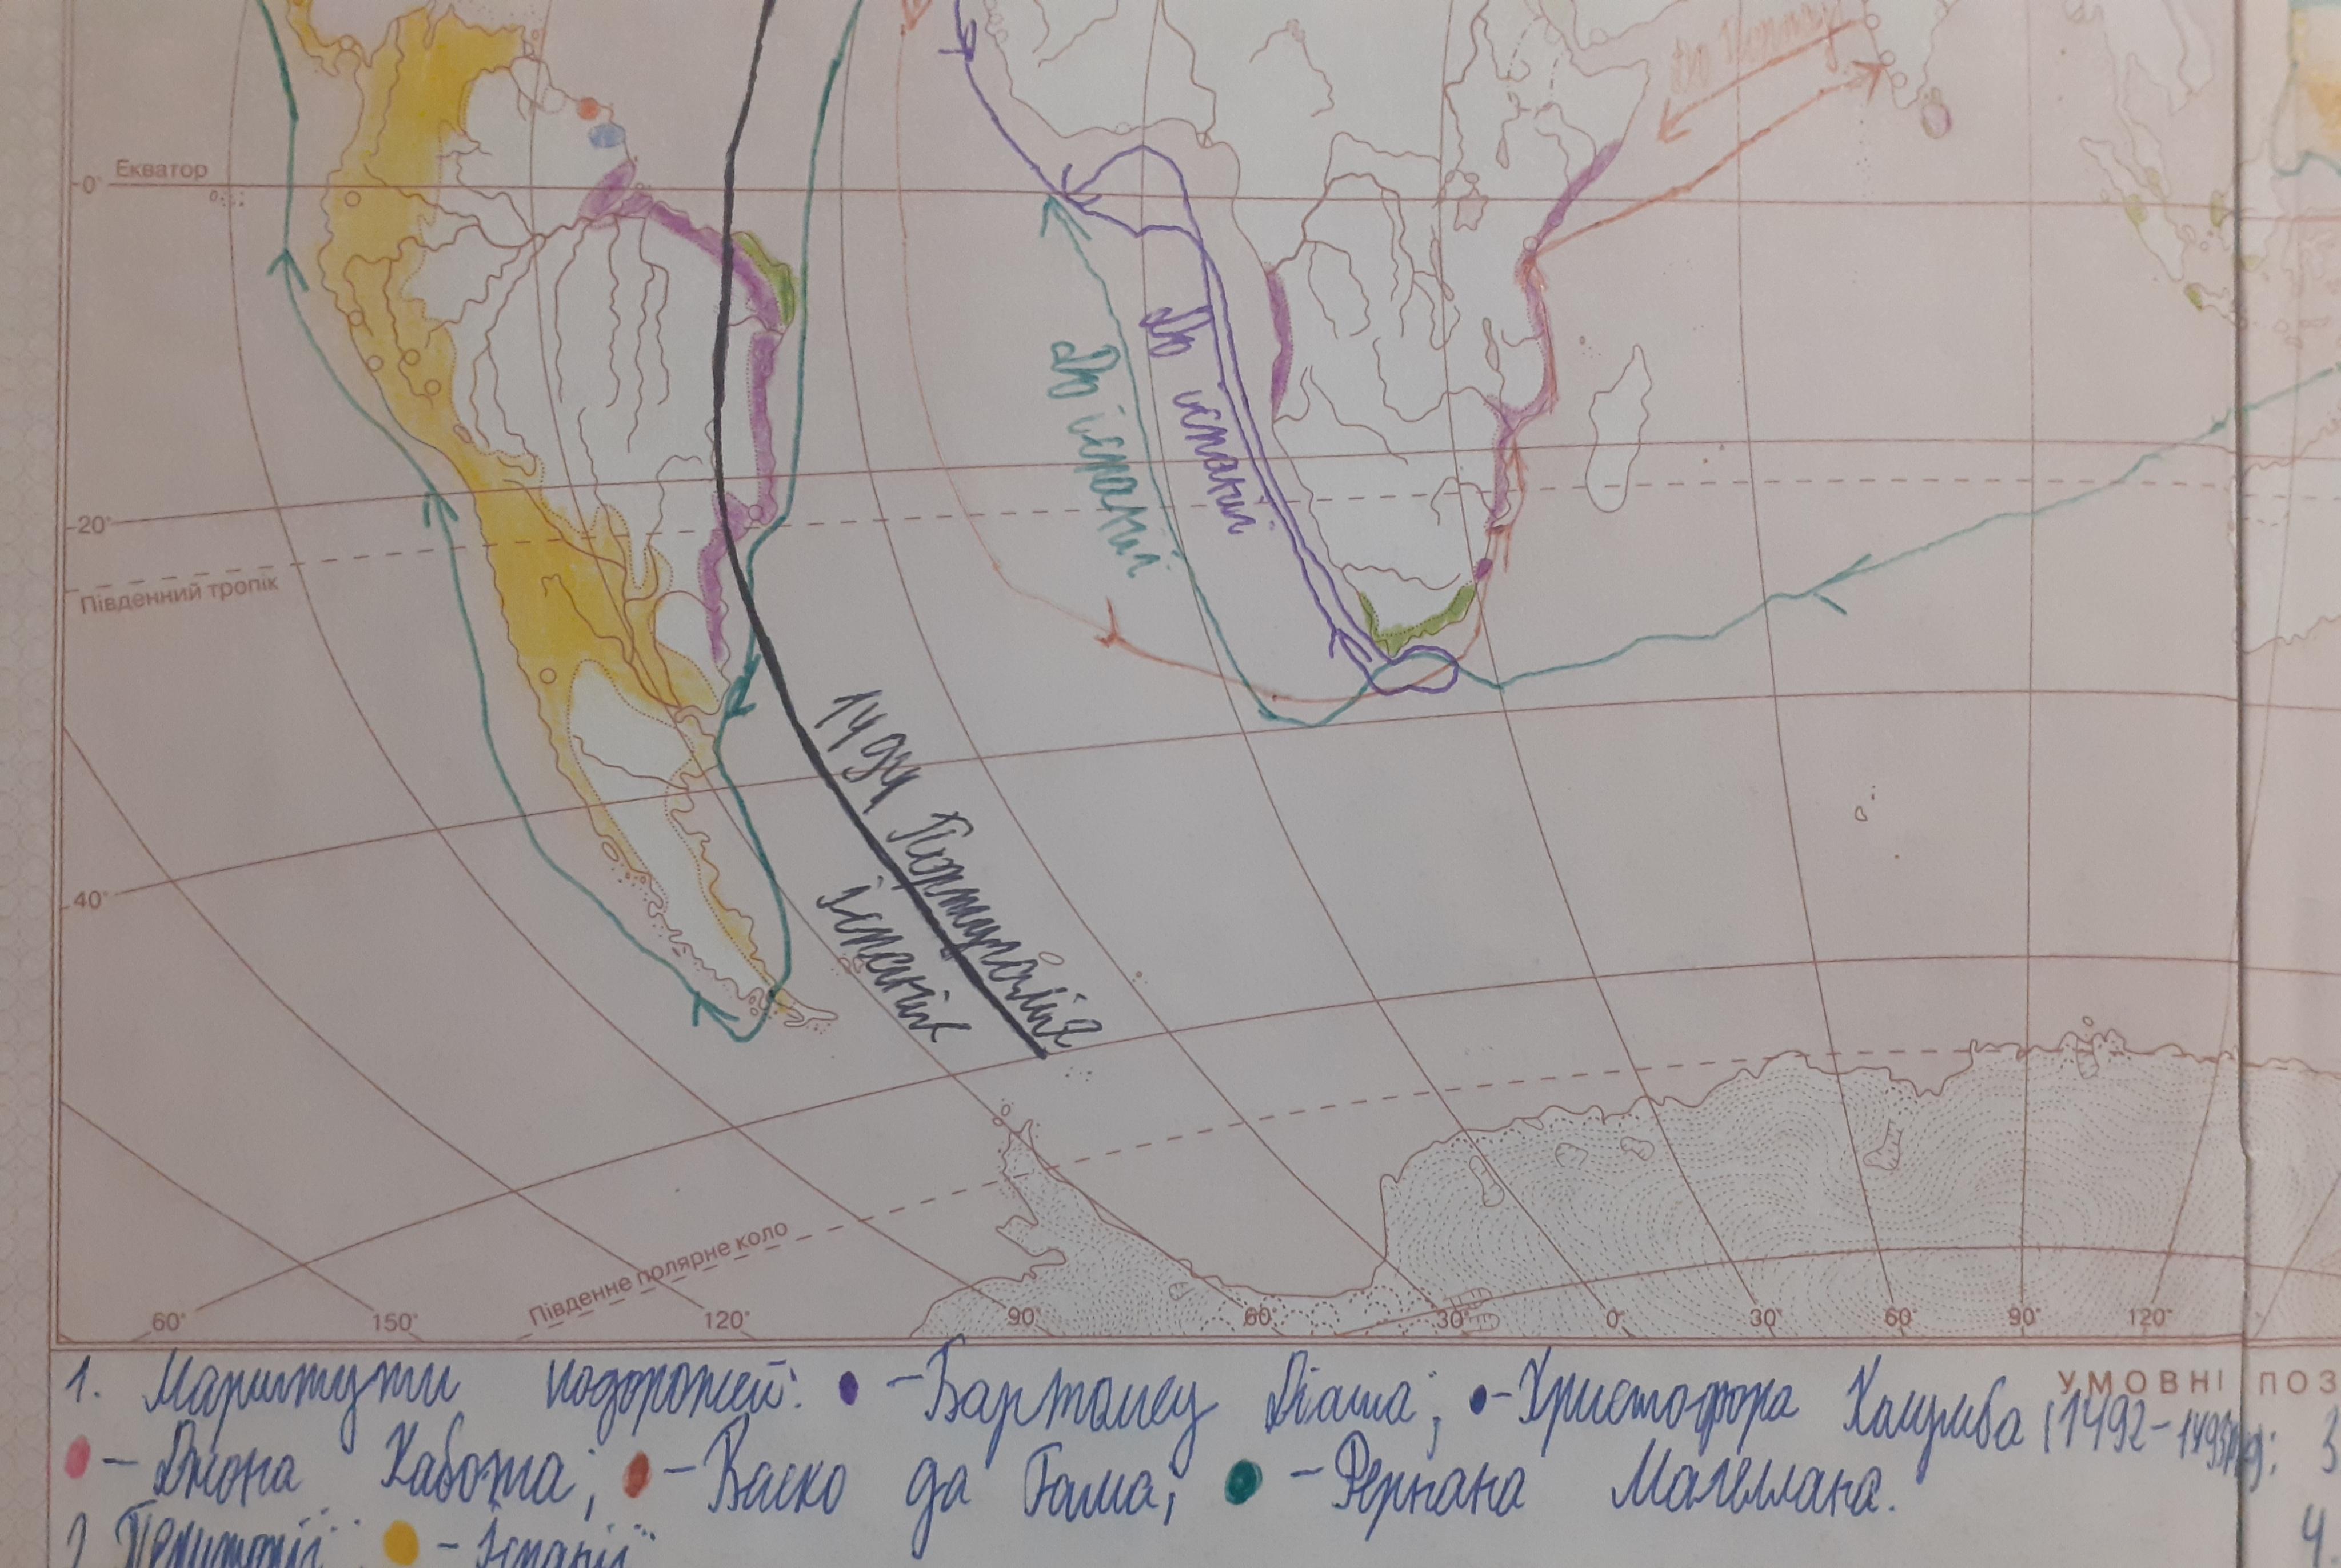 до Лісабону
Екватор
0°
До іспанії
До іспанії
20°
Південний тропік
1494 Португалія
Іспанія
40°
Південне полярне коло
60° 150° 120° 90° 60° 30° 0° 30° 60° 90° 120°
УМОВНІ ПОЗ
1. Маршрути подорожей: - Бартомеу Діаша; - Христофора Колумба (1492-1493рр); 3
- Джона Кабота; - Васко да Гама; - Фернана Магеллана.
4.
2. Території: - Іспанії